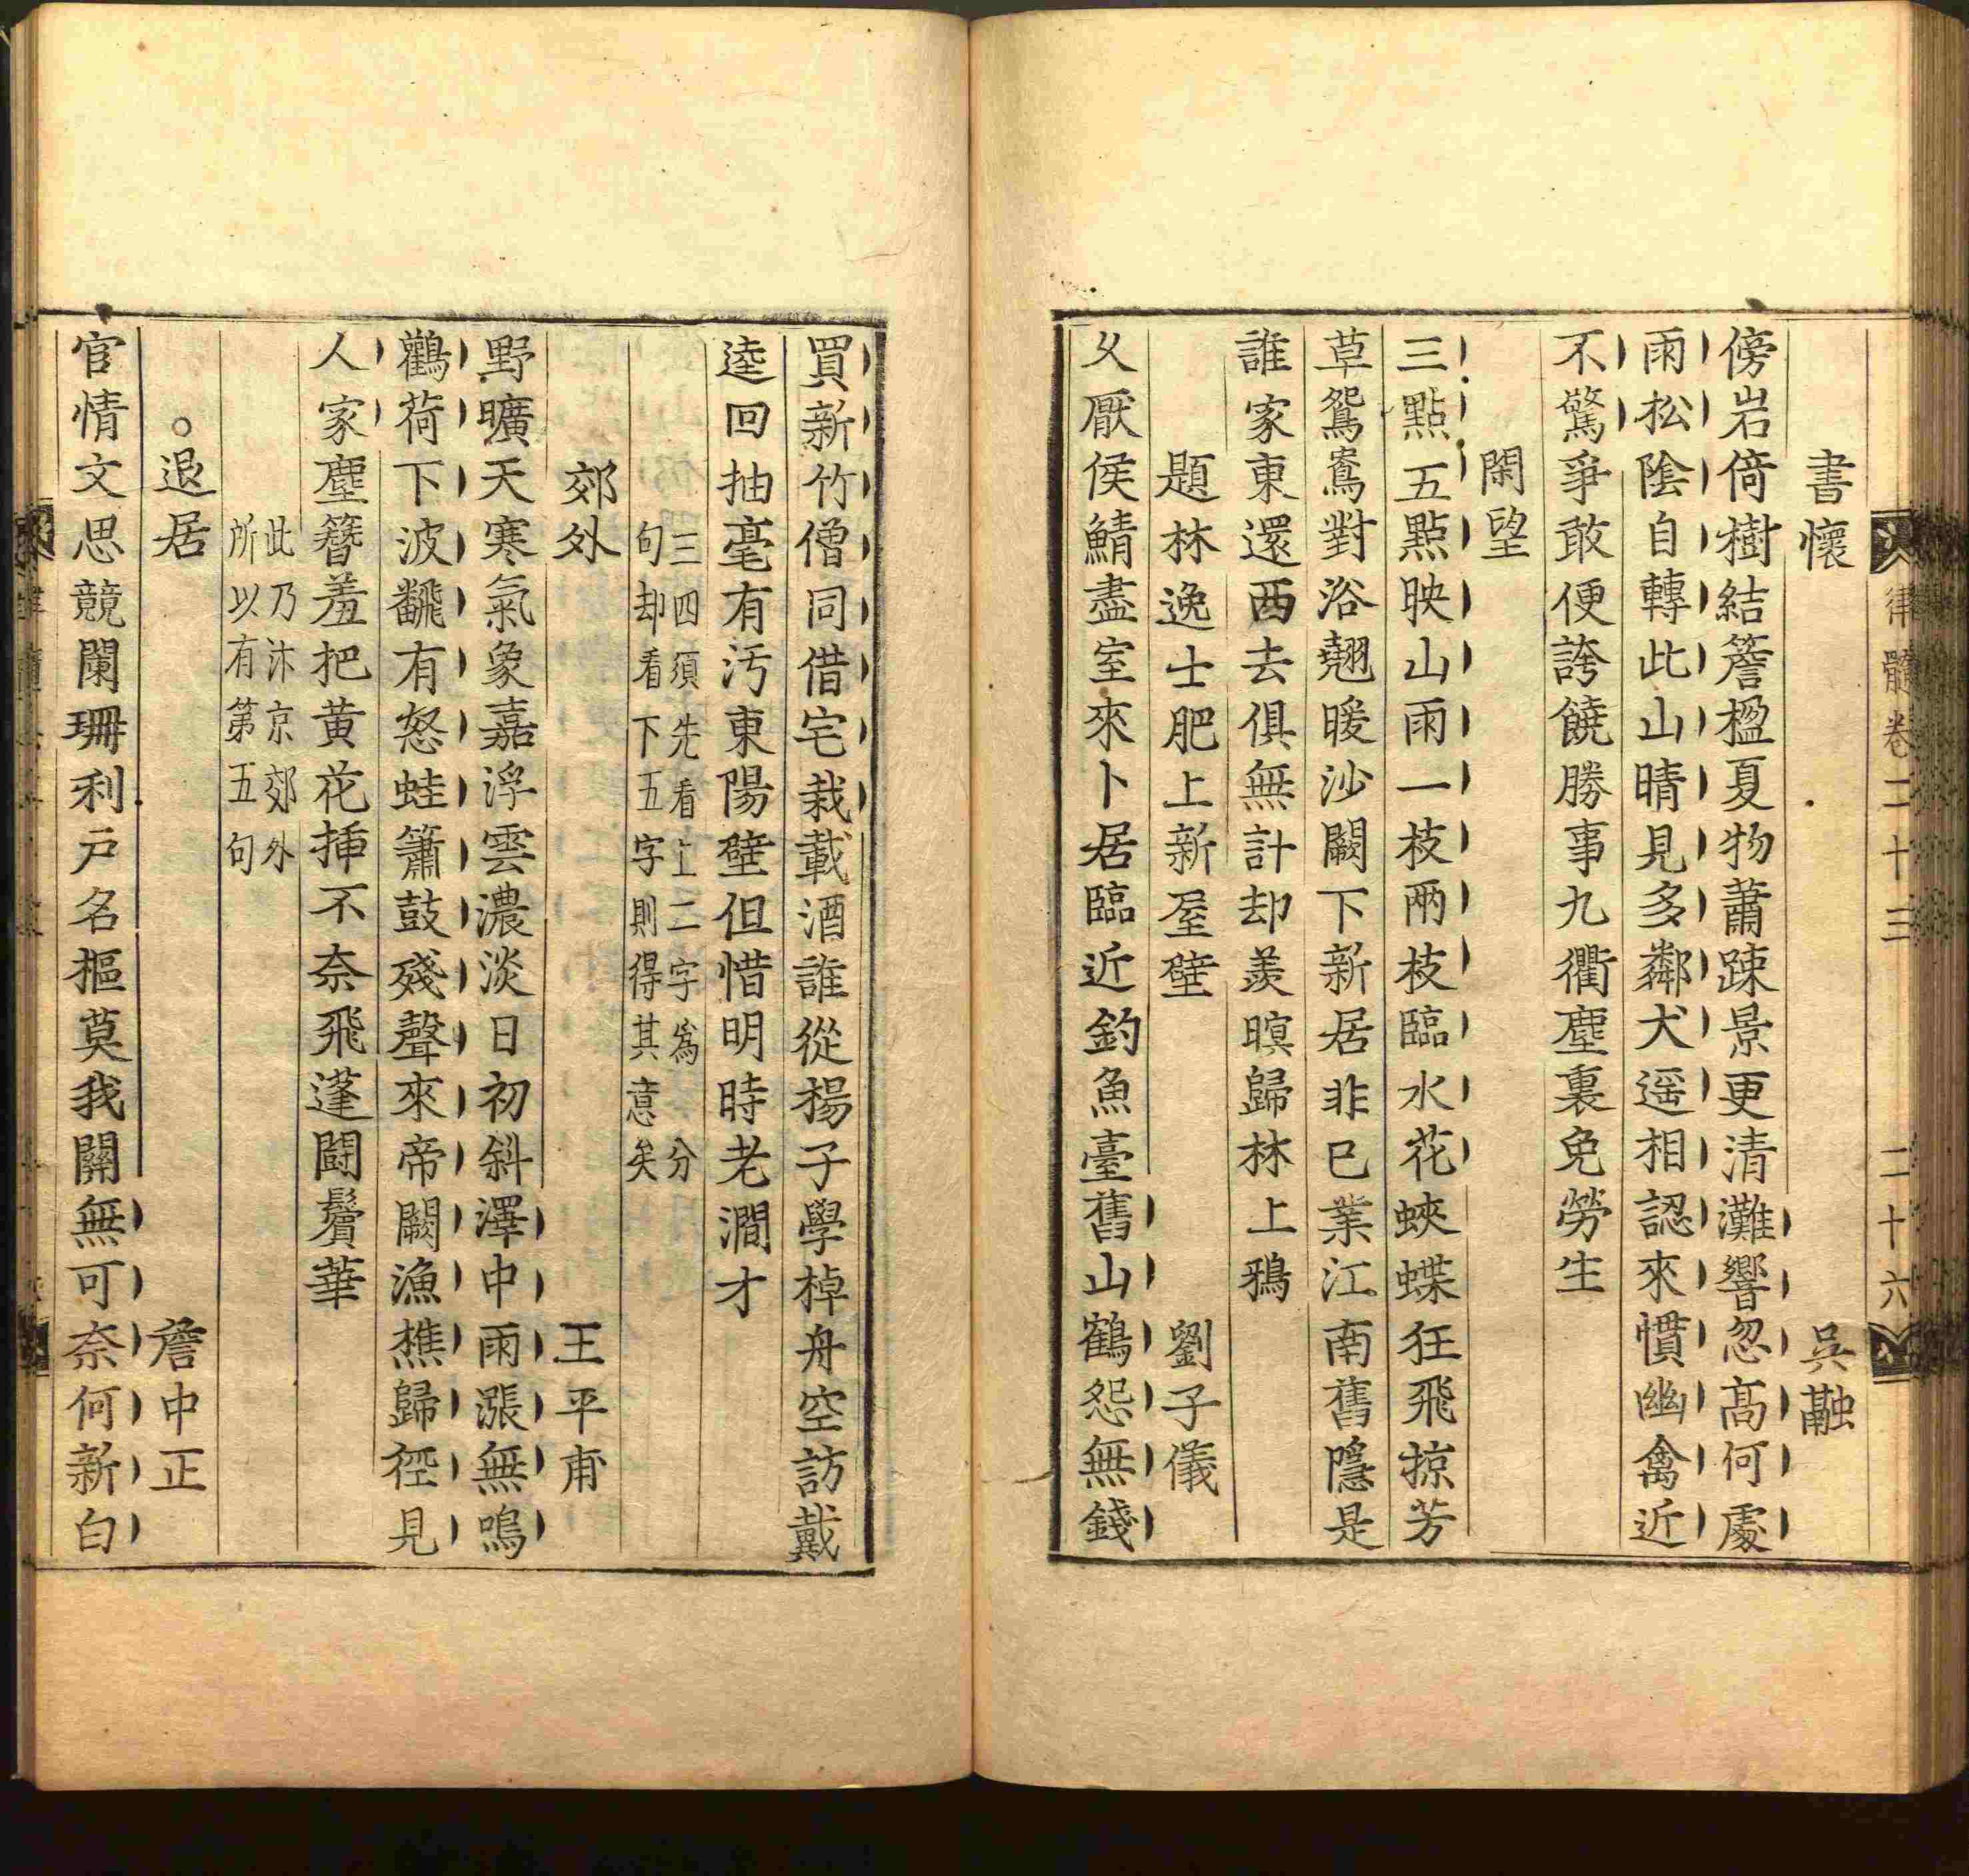 律髓卷二十三　二十六
書懷　吳融
傍岩倚樹結簷楹夏物蕭踈景更清灘響忽髙何處
雨松陰自轉此山晴見多鄰犬遥相認來慣幽禽近
不驚爭敢便誇饒勝事九衢塵裏免勞生
閑望
三點五點映山雨一枝兩枝臨水花蛺蝶狂飛掠芳
草鴛鴦對浴翹暖沙闕下新居非已業江南舊隱是
誰家東還西去俱無計却羨暝歸林上鴉
題林逸士肥上新屋壁　劉子儀
乆厭侯鯖盡室來卜居臨近釣魚臺舊山鶴怨無錢
買新竹僧同借宅栽載酒誰從揚子學棹舟空訪戴
逵回抽毫有汚東陽壁但惜明時老澗才
三四須先看上二字爲分
句却看下五字則得其意矣
郊外　王平甫
野曠天寒氣象嘉浮雲濃淡日初斜澤中雨漲無鳴
鸛荷下波飜有怒蛙簫鼓殘聲來帝闕漁樵歸徑見
人家塵簪羞把黄花揷不奈飛蓬鬪鬢華
此乃汴京郊外
所以有第五句
○退居　詹中正
官情文思競闌珊利戸名樞莫我關無可奈何新白